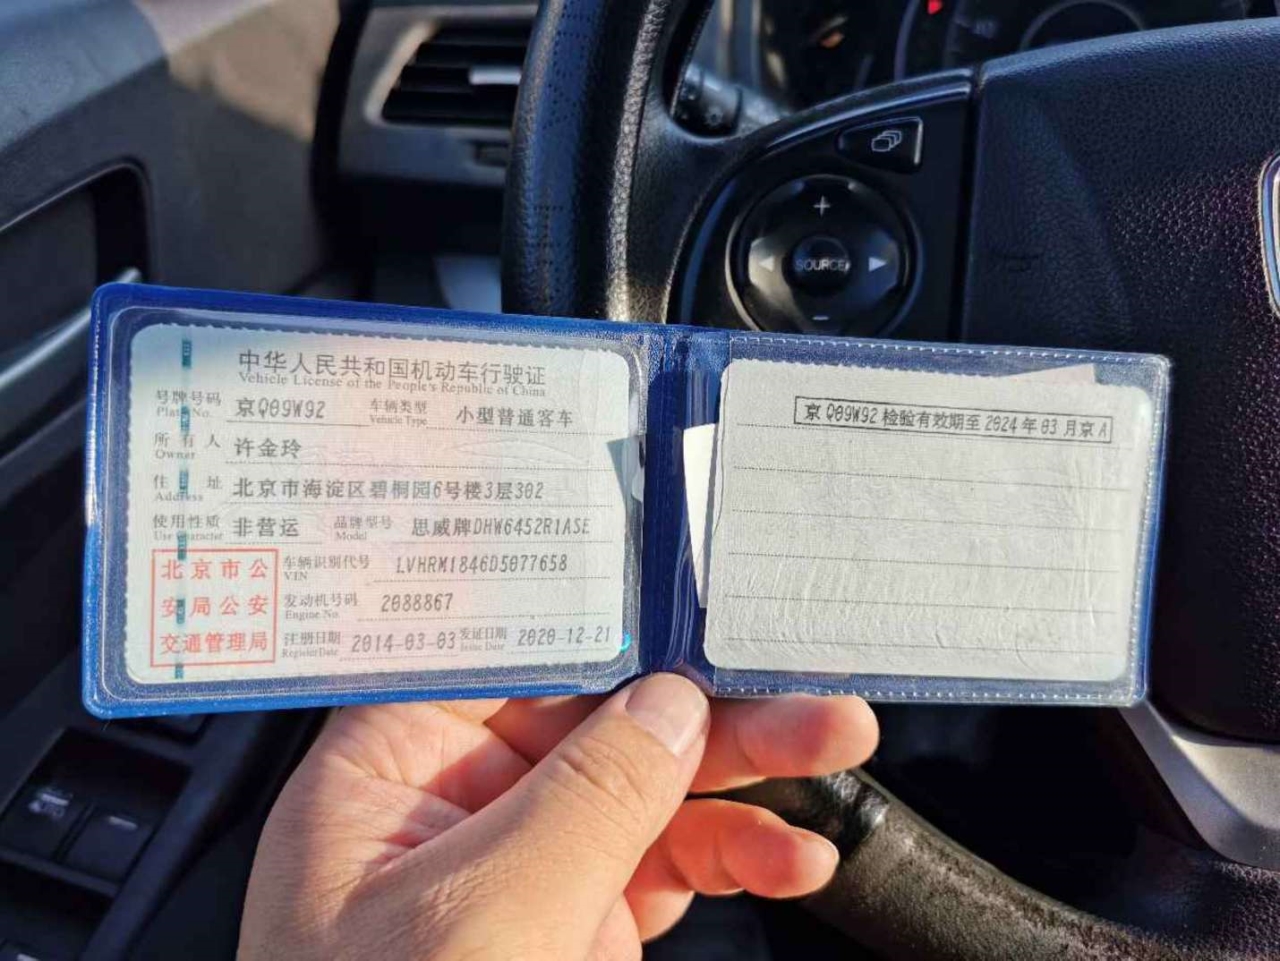 中华人民共和国机动车行驶证
Vehicle License of the People's Republic of China
号牌号码 京Q09W92 车辆类型 小型普通客车
Plate No. Vehicle Type
所有人 许金玲
Owner
住址 北京市海淀区碧桐园6号楼3层302
Address
使用性质 非营运 品牌型号 思威牌DHW6452R1ASE
Use Character Model
北京市公安局公安交通管理局
车辆识别代号 LVHRM1846D5077658
VIN
发动机号码 2088867
Engine No.
注册日期 2014-03-03 发证日期 2020-12-21
Register Date Issue Date
京Q09W92 检验有效期至 2024 年 03 月京A
+
SOURCE
-